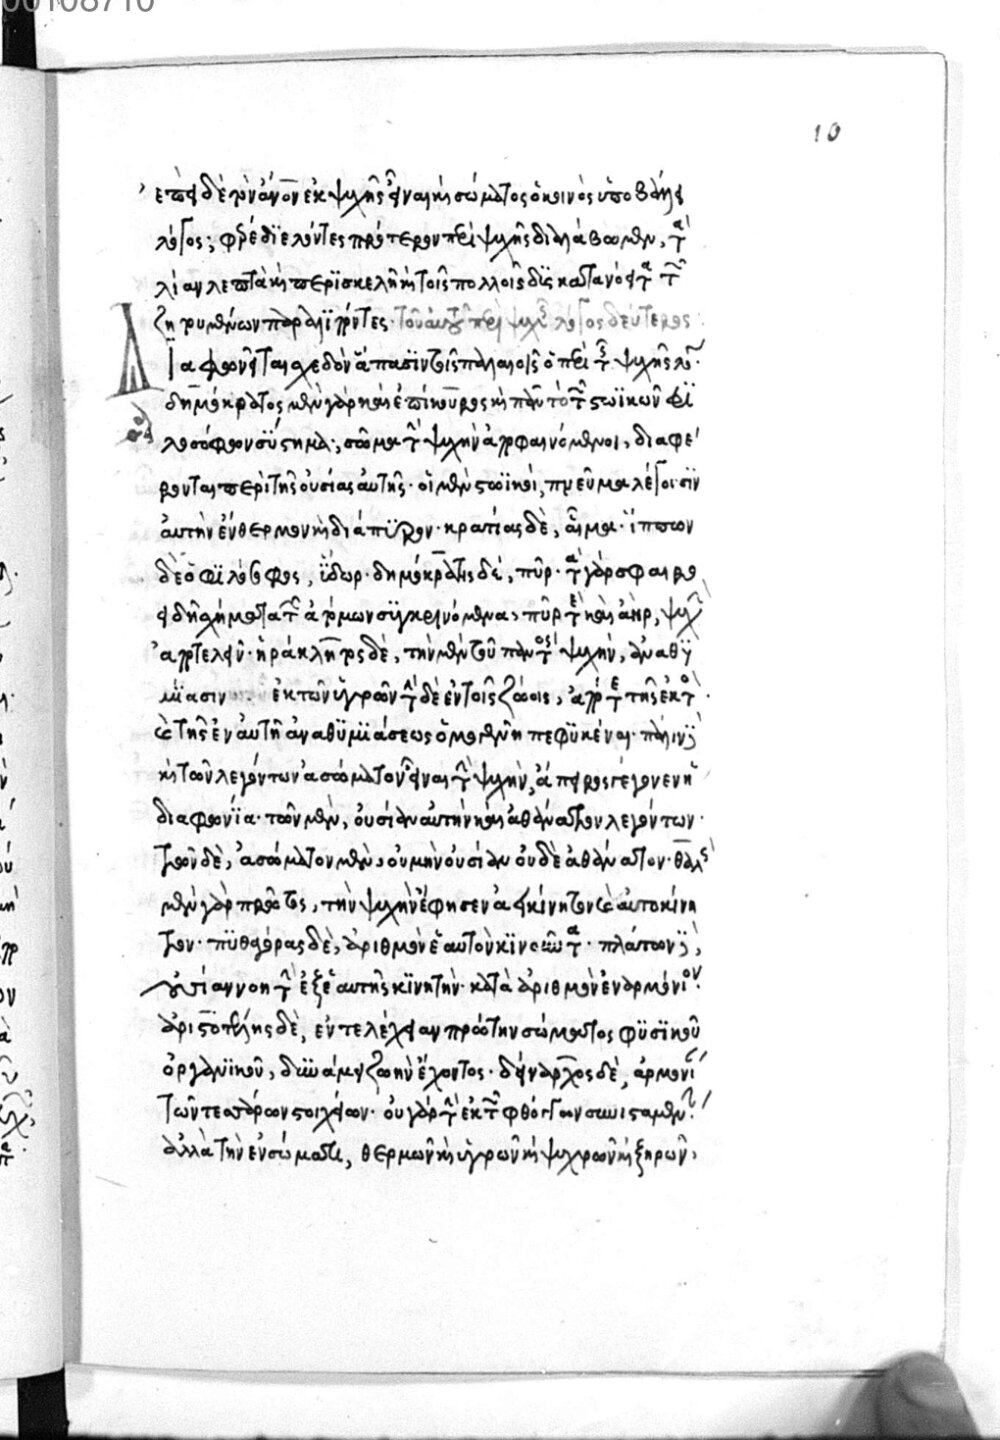 00108710
10
ἐπεὶ δὲ τὸν ἄνθρωπον ἐκ ψυχῆς εἶναι καὶ σώματος ὁ κοινὸς ὑποβάλλει
λόγος; φέρε διελόντες πρότερον περὶ ψυχῆς διαλάβωμεν, τὰ
λίαν λεπτὰ καὶ περισκελῆ καὶ τοῖς πολλοῖς δυσκατανόητα τῶν
ζητουμένων παραλιπόντες· τοῦ αὐτοῦ περὶ ψυχῆς λόγος δεύτερος:
Διαφωνεῖται σχεδὸν ἅπασιν τοῖς παλαιοῖς ὁ περὶ τῆς ψυχῆς λόγος·
δημόκριτος μὲν γὰρ καὶ ἐπίκουρος καὶ πᾶν τὸ τῶν στωϊκῶν φι
λοσόφων σύστημα, σῶμα τὴν ψυχὴν ἀποφαινόμενοι, διαφέ
ρονται περὶ τῆς οὐσίας αὐτῆς· οἱ μὲν στωϊκοί, πνεῦμα λέγουσιν
αὐτὴν ἔνθερμον καὶ διάπυρον· κριτίας δὲ, αἷμα· ἵππων
δὲ ὁ φιλόσοφος, ὕδωρ· δημόκριτος δέ, πῦρ· τὰ γὰρ σφαιρο
ειδῆ σχήματα τῶν ἀτόμων συγκρινόμενα, πῦρ τε καὶ ἀὴρ, ψυχὴν
ἀποτελεῖν· ἡράκλειτος δὲ, τὴν μὲν τοῦ παντὸς ψυχήν, ἀναθυ
μίασιν ἐκ τῶν ὑγρῶν τὴν δὲ ἐν τοῖς ζώοις, ἀπό τε τῆς ἐκτὸς
καὶ τῆς ἐν αὐτῇ ἀναθυμιάσεως ὁμογενῆ πεφυκέναι· πάλιν δὲ
καὶ τῶν λεγόντων ἀσώματον εἶναι τὴν ψυχὴν, ἄπειρος γέγονεν ἡ
διαφωνία· τῶν μὲν, οὐσίαν αὐτὴν καὶ ἀθάνατον λεγόντων·
τῶν δὲ, ἀσώματον μὲν, οὐ μὴν οὐσίαν οὐδὲ ἀθάνατον· θαλῆς
μὲν γὰρ πρῶτος, τὴν ψυχὴν ἔφησεν ἀεικίνητον καὶ αὐτοκίνη
τον· πυθαγόρας δὲ, ἀριθμὸν ἑαυτὸν κινοῦντα· πλάτων δὲ,
οὐσίαν νοητὴν ἐξ ἑαυτῆς κινητὴν· κατὰ ἀριθμὸν ἐναρμόνιον·
ἀριστοτέλης δὲ, ἐντελέχειαν πρώτην σώματος φυσικοῦ
ὀργανικοῦ, δυνάμει ζωὴν ἔχοντος· δείναρχος δὲ, ἁρμονίαν
τῶν τεσσάρων στοιχείων· οὐ γὰρ τὴν ἐκ τῶν φθόγγων συνισταμένην,
ἀλλὰ τὴν ἐν σώματι, θερμῶν καὶ ὑγρῶν καὶ ψυχρῶν καὶ ξηρῶν,